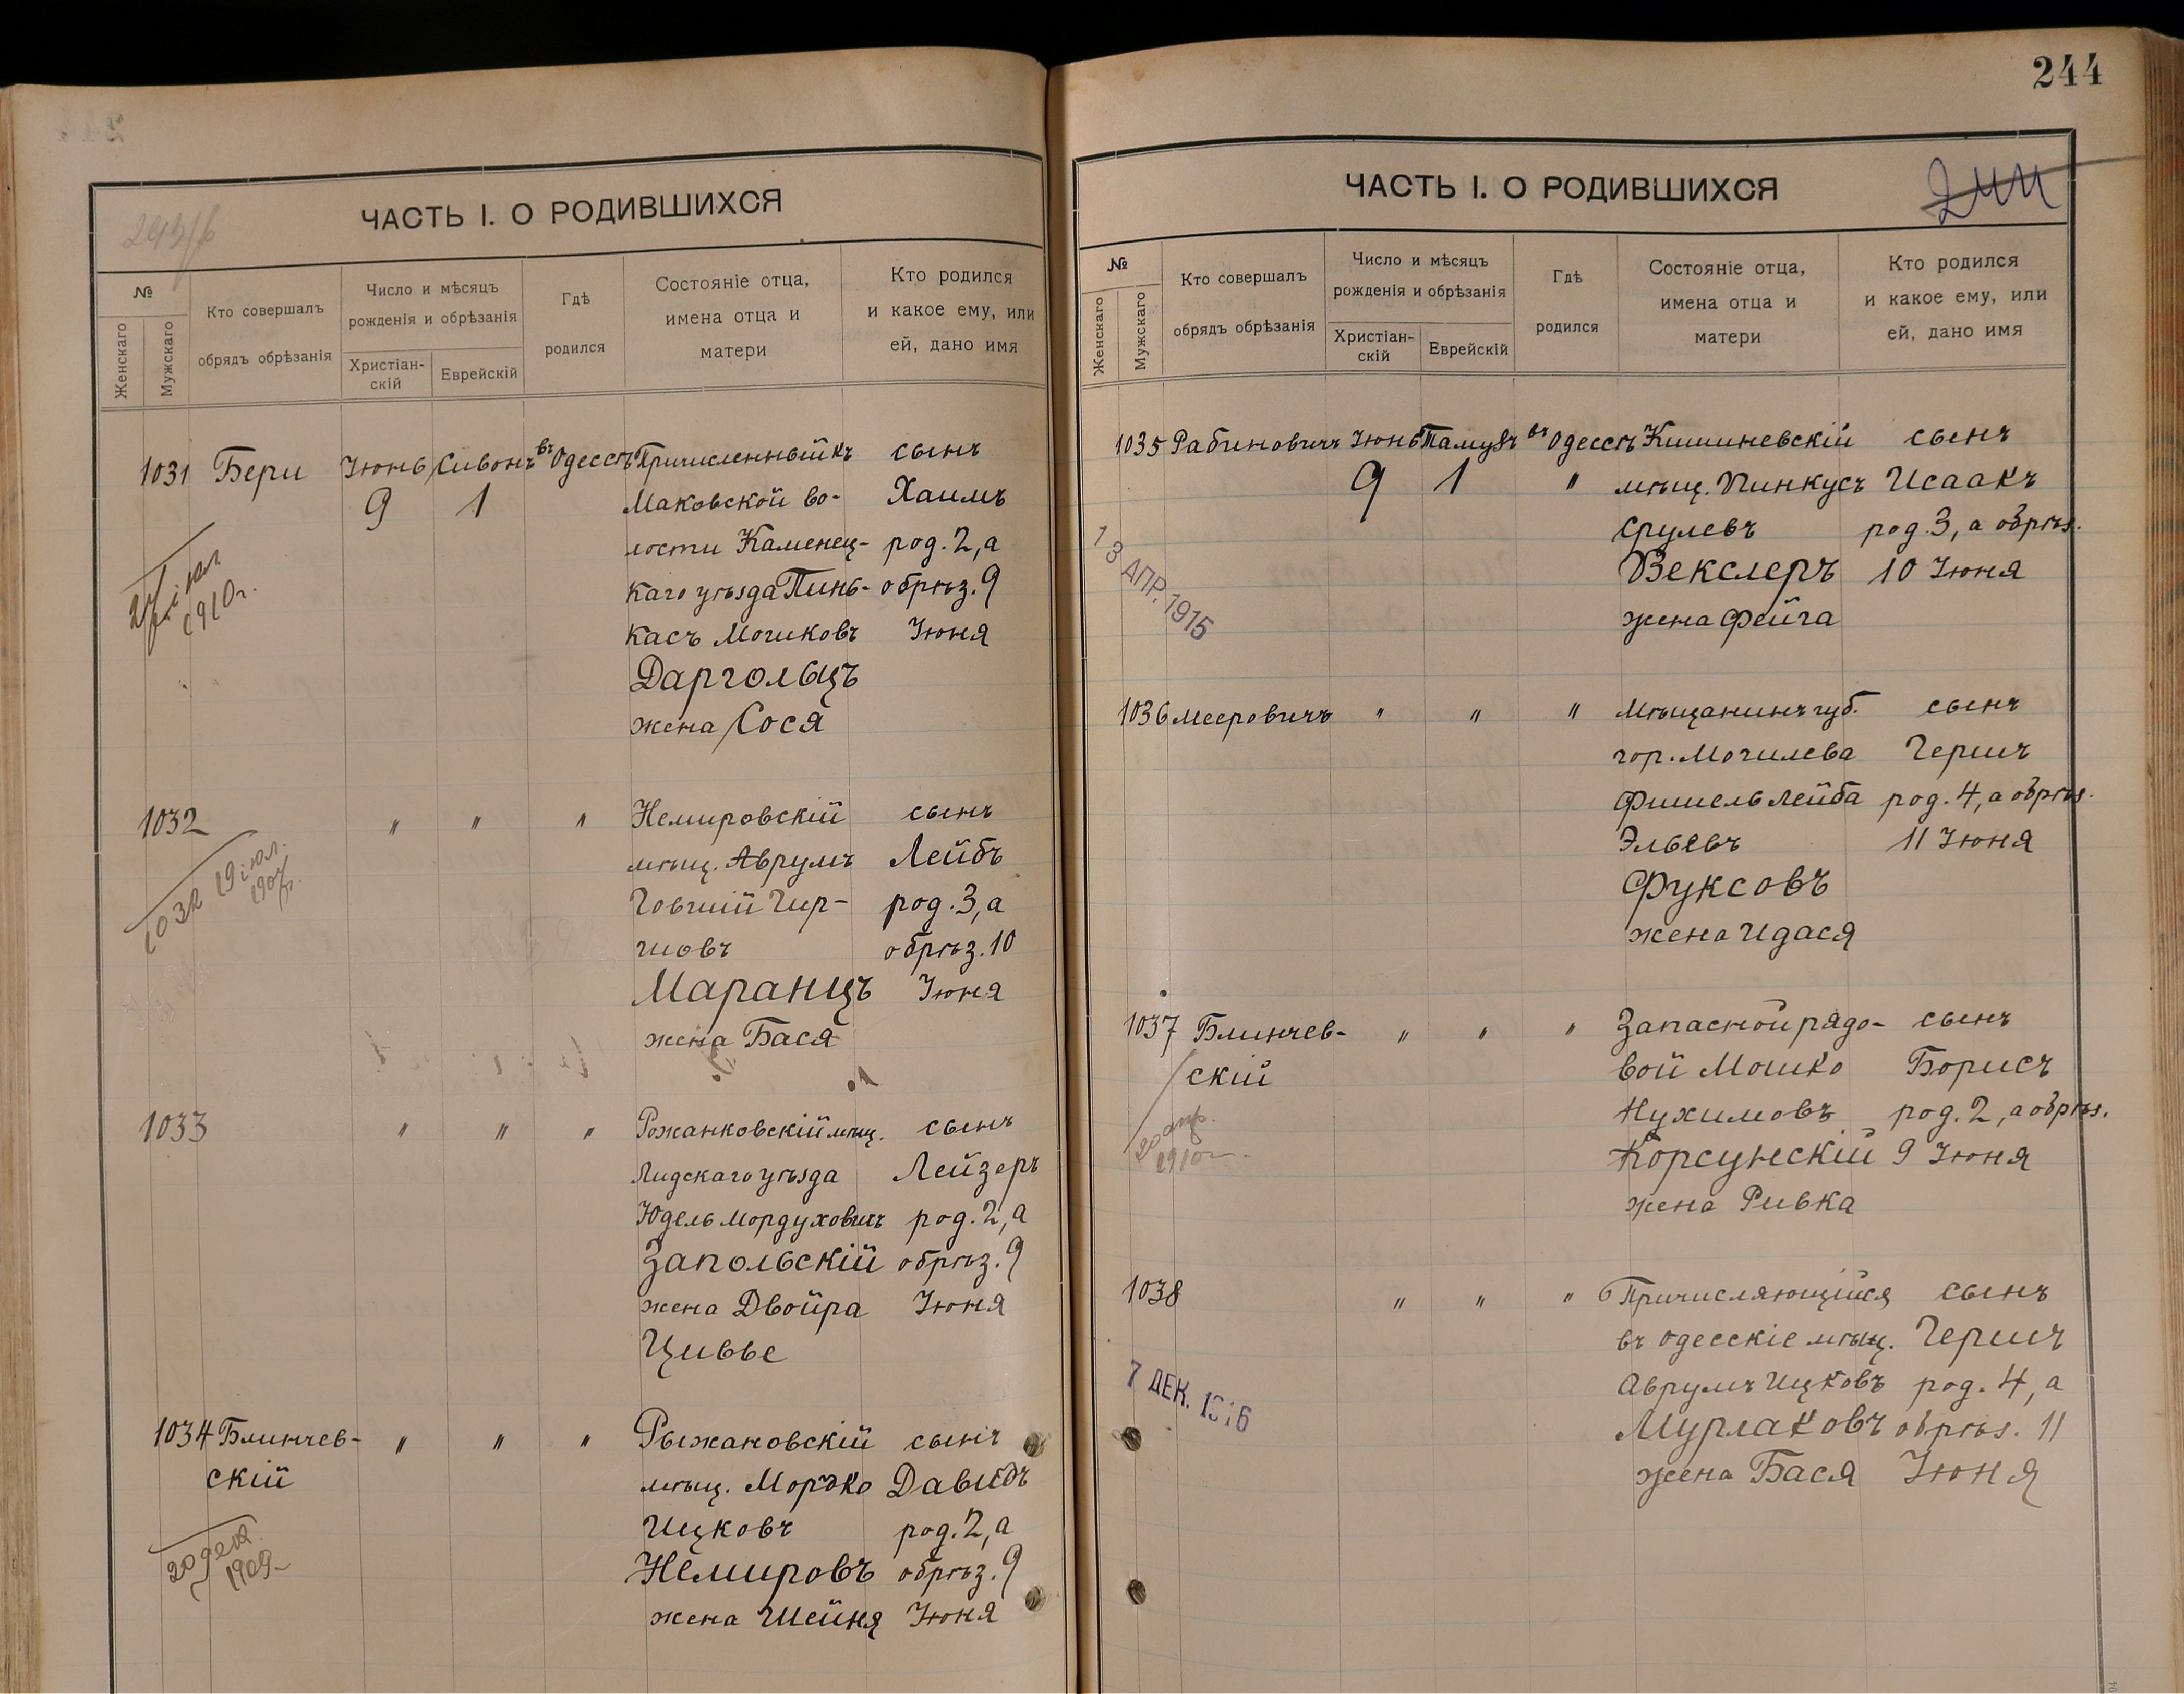 244
ЧАСТЬ I. О РОДИВШИХСЯ
№
Женскаго
Мужскаго
Кто совершалъ
обрядъ обрѣзанія
Число и мѣсяцъ
рожденія и обрѣзанія
Христіан-
скій
Еврейскій
Гдѣ
родился
Состояніе отца,
имена отца и
матери
Кто родился
и какое ему, или
ей, дано имя
1031 Бери Іюнь Сивонъ въ Одессѣ Причисленный къ сынъ
9 1 Маковской во- Хаимъ
лости Каменец- род. 2, а
каго уѣзда Пинь- обрѣз. 9
касъ Мошковъ Іюня
Даргольцъ
жена Сося
1910г.
1032 " " " Немировскій сынъ
мѣщ. Аврумъ Лейбъ
Говшій Гир- род. 3, а
шовъ обрѣз. 10
Маранцъ Іюня
жена Бася
1032 19 іюл.
1033 " " " Рожанковскій мѣщ. сынъ
Лидскаго уѣзда Лейзеръ
Юдель Мордуховичъ род. 2, а
Запольскій обрѣз. 9
жена Двойра Іюня
Цивье
1034 Блинчев- " " " Рыжановскій сынъ
скій мѣщ. Мордко Давидъ
Ицковъ род. 2, а
Немировъ обрѣз. 9
жена Шейня Іюня
20 дек.
1909
ЧАСТЬ I. О РОДИВШИХСЯ
№
Женскаго
Мужскаго
Кто совершалъ
обрядъ обрѣзанія
Число и мѣсяцъ
рожденія и обрѣзанія
Христіан-
скій
Еврейскій
Гдѣ
родился
Состояніе отца,
имена отца и
матери
Кто родился
и какое ему, или
ей, дано имя
1035 Рабиновичъ Іюнь Тамузъ въ Одессѣ Кишиневскій сынъ
9 1 " мѣщ. Пинкусъ Исаакъ
Срулевъ род. 3, а обрѣз.
Векслеръ 10 Іюня
жена Фейга
13 АПР. 1915
1036 Мееровичъ " " " Мѣщанинъ губ. сынъ
гор. Могилева Гершъ
Фишель Лейба род. 4, а обрѣз.
Эльевъ 11 Іюня
Фуксовъ
жена Идася
1037 Блинчев- " " " Запасной рядо- сынъ
скій вой Мошко Борисъ
Нухимовъ род. 2, а обрѣз.
Корсунскій 9 Іюня
жена Ривка
20 апр.
1910г.
1038 " " " Причисляющійся сынъ
въ Одесскіе мѣщ. Гершъ
Аврумъ Ицковъ род. 4, а
Мурлаковъ обрѣз. 11
жена Бася Іюня
7 ДЕК. 1916